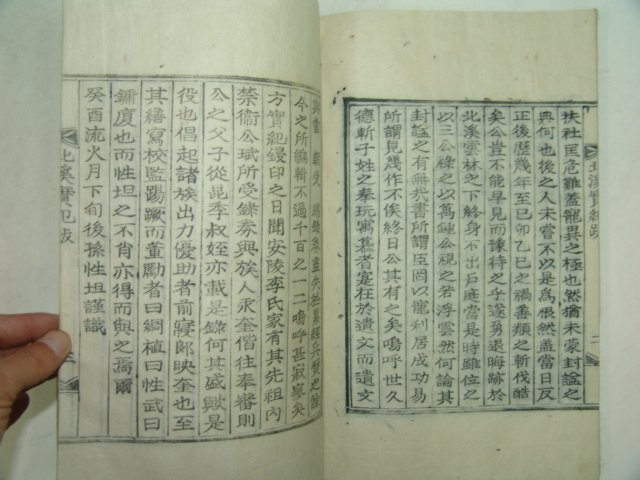 北溪實紀跋 二
扶社匡危難蓋寵異之極也然猶未蒙封諡之
典何也後之人未嘗不以是爲恨然盖當日反
正後歷幾年至己卯乙巳之禍善類之斬伐酷
矣公豈不能早見而豫待之乎遂勇退晦跡於
北溪雲林之下終身不出戶庭當是時雖位之
以三公祿之以萬鍾公視之若浮雲然何論其
封諡之有無哉書所謂臣罔以寵利居成功易
所謂見幾作不俟終日公其有之矣嗚呼世久
德斬子姓之奉玩寓慕者寔在於遺文而遺文
與當 賜券盡失於累經兵燹之餘
今之所編輯不過千百之一二嗚呼甚寂寥矣
方實紀鋟印之日聞安陵李氏家有其先祖內
禁衛公珷所受錄券與族人永奎偕往奉審則
公之父子從昆季叔姪亦載是錄何其盛歟是
役也倡起諸族出力優助者前寢郞映奎也至
其繕寫校監踢蹶而董勵者曰綱植曰性武曰
鏞廈也而性坦之不肖亦得而與之焉爾
癸酉流火月下旬後孫性坦謹識
北溪實紀跋